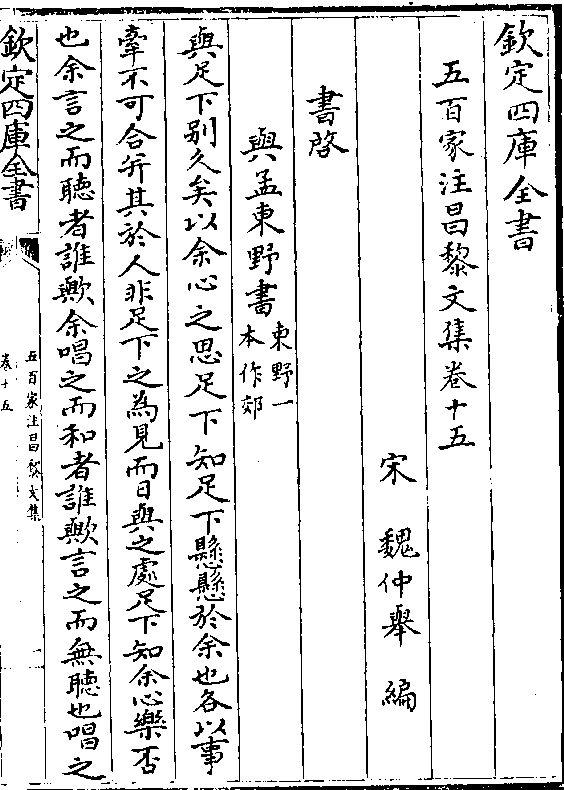 欽定四庫全書
五百家注昌黎文集卷十五
宋 魏仲舉 編
書啓
與孟東野書東野一本作郊
與足下别久矣以余心之思足下知足下懸懸於余也各以事
牽不可合并其於人非足下之為見而日與之處足下知余心樂否
也余言之而聽者誰歟余唱之而和者誰歟言之而無聽也唱之
欽定四庫全書
五百家注昌黎文集
卷十五
一